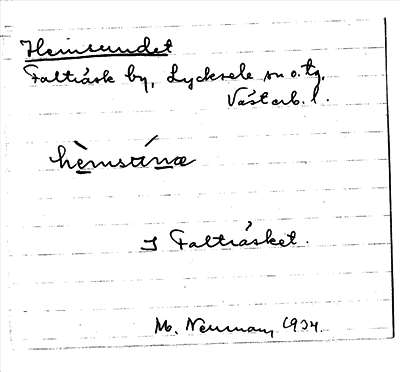 Hemsundet
Falträsk by, Lycksele sn o. tg,
Västerb. l.
I Falträsket.
M. Neuman, 1934.